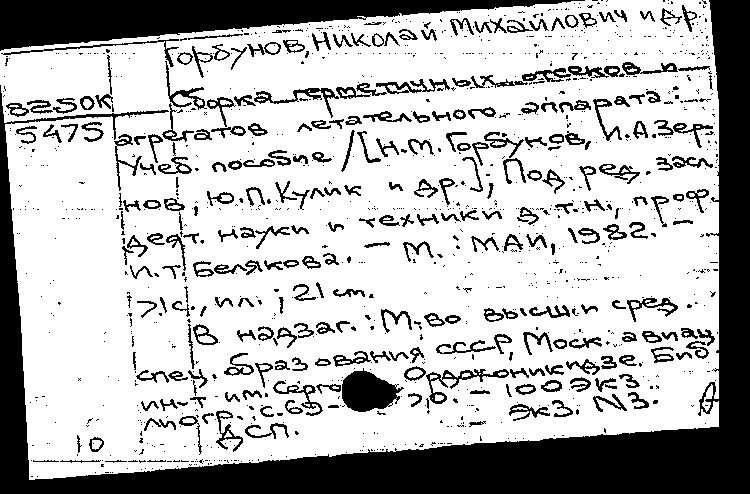 Горбунов, Николай Михайлович и др.
8250К Сборка герметичных отсеков и
5475 агрегатов летательного аппарата:
Учеб. пособие / [Н.М. Горбунов, И.А. Зер-
нов, Ю.П. Кулик и др.]; Под. ред. засл.
деят. науки и техники д.т.н., проф.
И.Т. Белякова. – М.: МАИ, 1982. –
71с., ил.; 21 см.
В надзаг.: М-во высш. и сред.
спец. образования СССР, Моск. авиац.
ин-т им. Серго Орджоникидзе. Биб-
лиогр.: с. 69-70. – 100 экз.
ДСП. Экз. N3. А
10